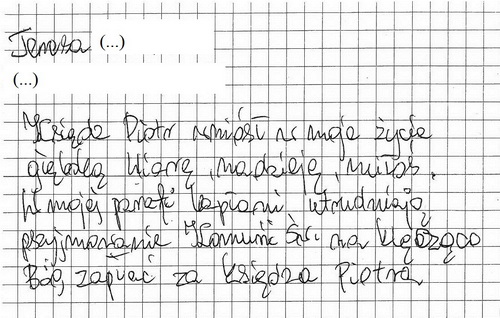 Teresa (...)
(...)
Ksiądz Piotr wniósł w moje życie
głęboką wiarę, nadzieję, miłość.
W mojej parafi kapłani utrudniają
przyjmowanie Komunii Św. na klęcząco
Bóg zapłać za księdza Piotra